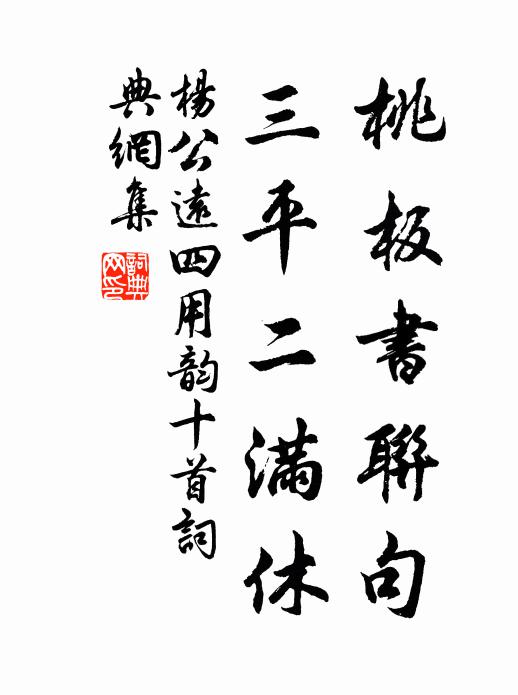 桃板書聯句
三平二滿休
楊公遠四用韵十首詞
典網集
詞典網印